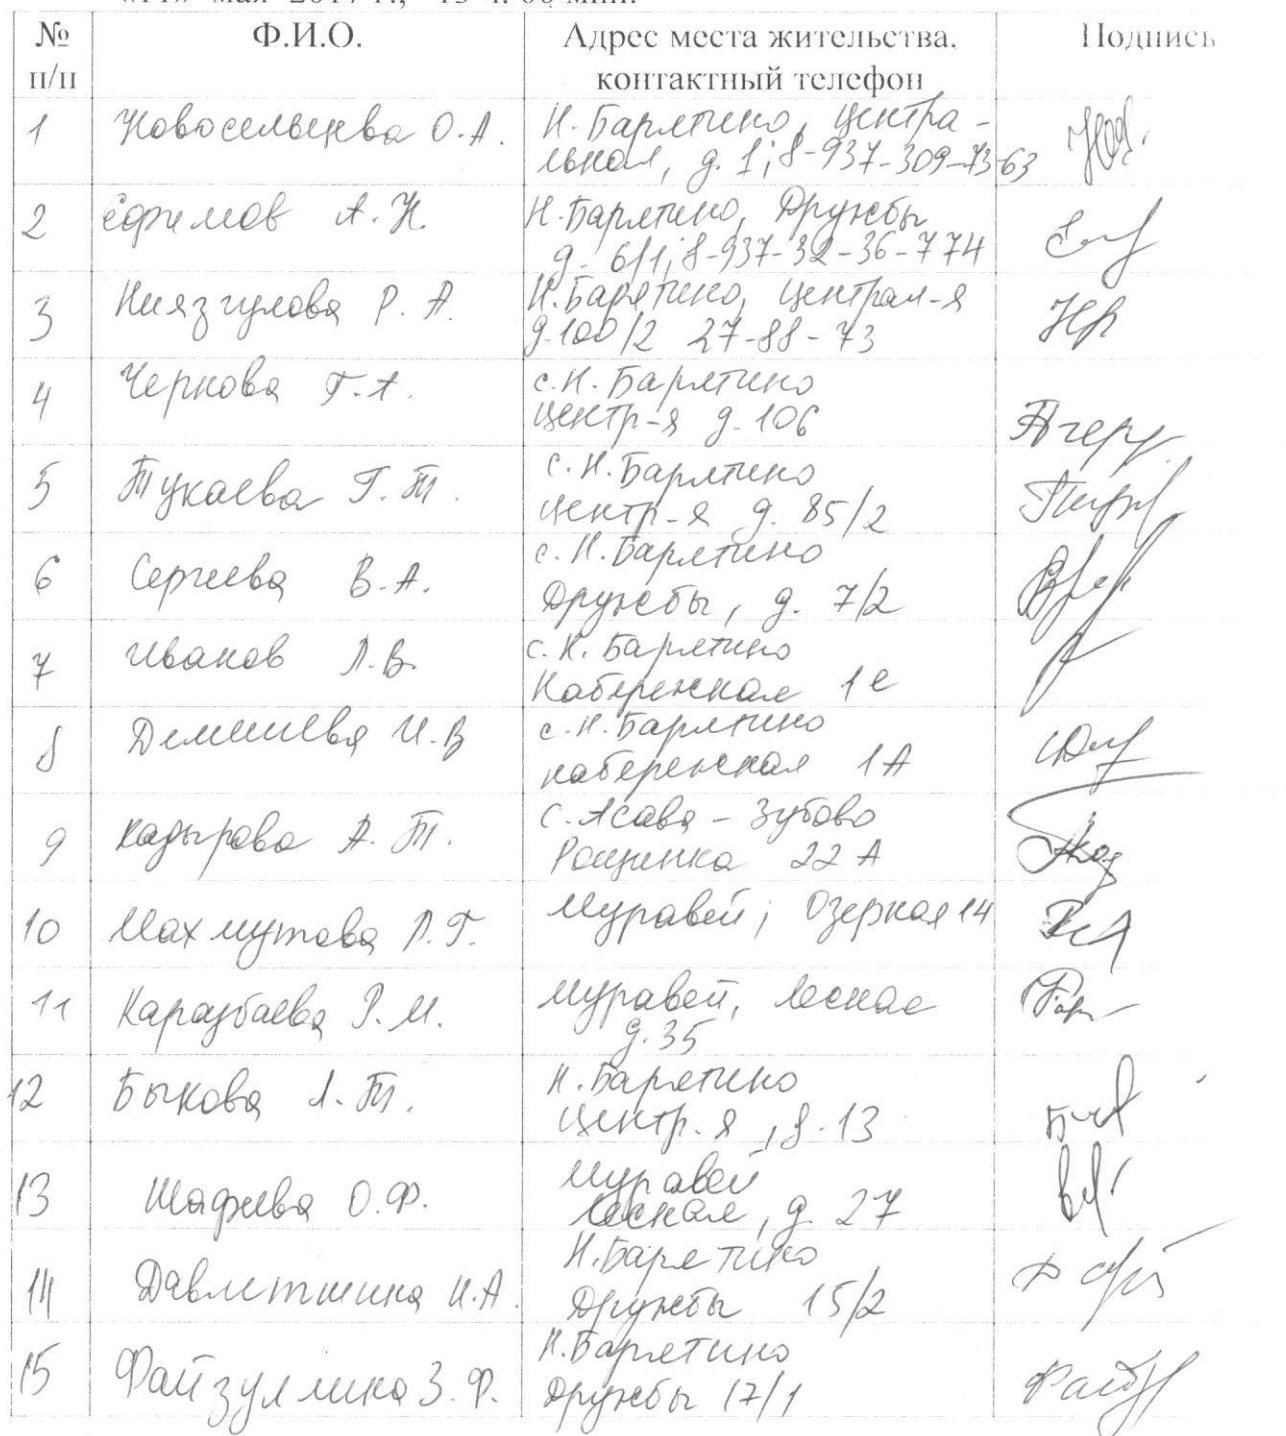 № Ф.И.О. Адрес места жительства, Подпись
п/п контактный телефон
1 Новосельцева О.А. Н. Барятино, Центра-
льная, д. 1; 8-937-309-73-63
2 Ефимов А.Н. Н. Барятино, Дружбы
д. 6/1; 8-937-32-36-774
3 Ниязгулова Р.А. Н. Барятино, Централ-я
д. 100/2 27-88-73
4 Чернова Г.А. с. Н. Барятино
Центр-я д. 106
5 Тукаева Г.Т. с. Н. Барятино
Центр-я д. 85/2
6 Сергеева В.А. с. Н. Барятино
Дружбы, д. 7/2
7 Иванов Л.В. с. Н. Барятино
Набережная 1е
8 Дементьева И.В с. Н. Барятино
набережная 1А
9 Кадырова А.Т. с. Асава-Зубово
Рощинка 22 А
10 Махмутова Р.Г. Муравей; Озерная 14
11 Каразбаева Р.М. Муравей, Лесная
д. 35
12 Быкова Л.Т. Н. Барятино
Центр. я, 8-13
13 Шафиева О.Ф. Муравей
Лесная, д. 27
14 Давлетшина И.А. Н. Барятино
Дружбы 15/2
15 Файзуллина З.Ф. Н. Барятино
Дружбы 17/1